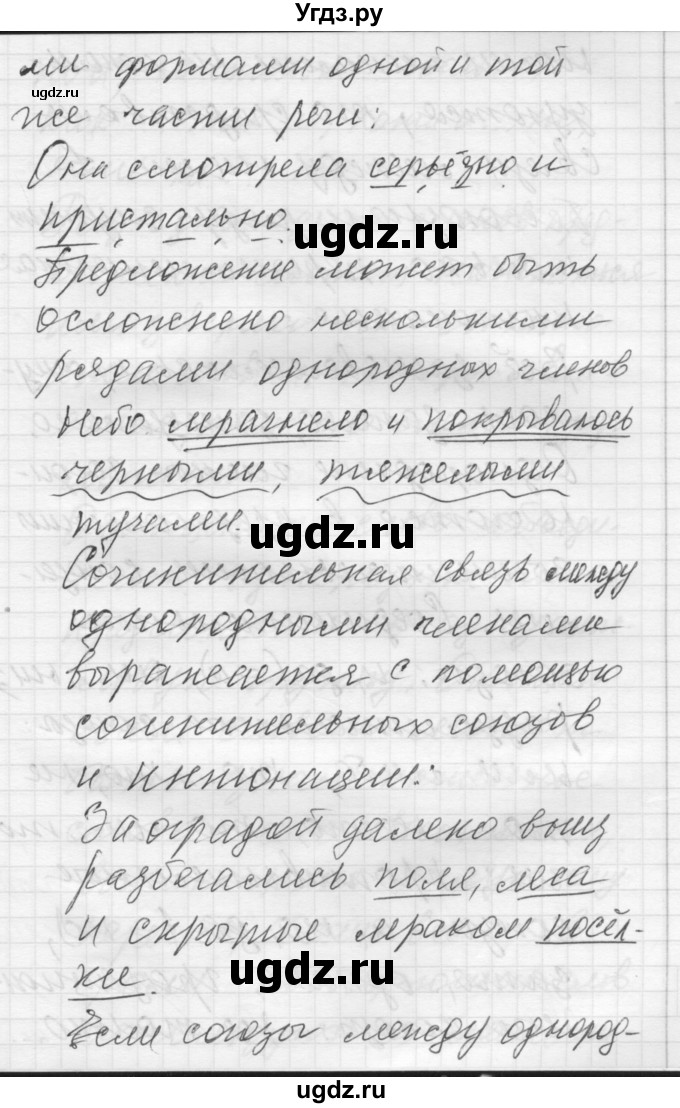 Угдз.ру
ми формами одной и той
ugdz.ru
же части речи:
Она смотрела серьёзно и
пристально.
ugdz.ru
Предложение может быть
осложнено несколькими
рядами однородных членов
Небо мрачнело и покрывалось
черными, тяжелыми
тучами.
ugdz.ru
Сочинительная связь между
однородными членами
выражается с помощью
сочинительных союзов
и интонации:
За оградой далеко вниз
разбегались поля, леса
и скрытые мраком посёл-
ки.
ugdz.ru
Если союзы между однород-
ugdz.ru